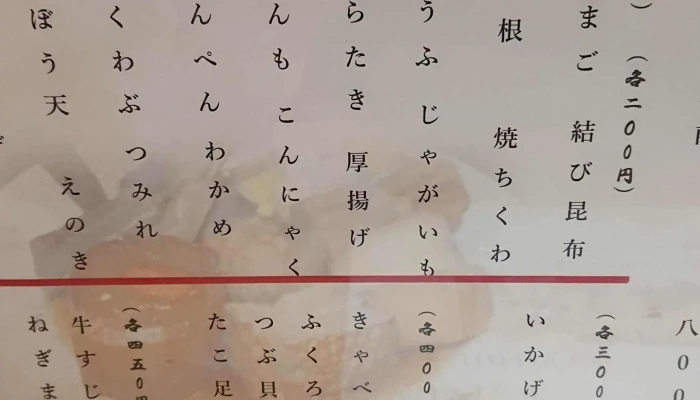 （各二〇〇円）
まご 結び昆布
根 焼ちくわ
うふ じゃがいも
らたき 厚揚げ
んも こんにゃく
んぺん わかめ
くわぶ つみれ
ぼう天 えのき
八〇〇
（各三〇〇
いかげ
（各四〇〇
きゃべ
ふくろ
つぶ貝
たこ足
（各四五〇円
牛すじ
ねぎま